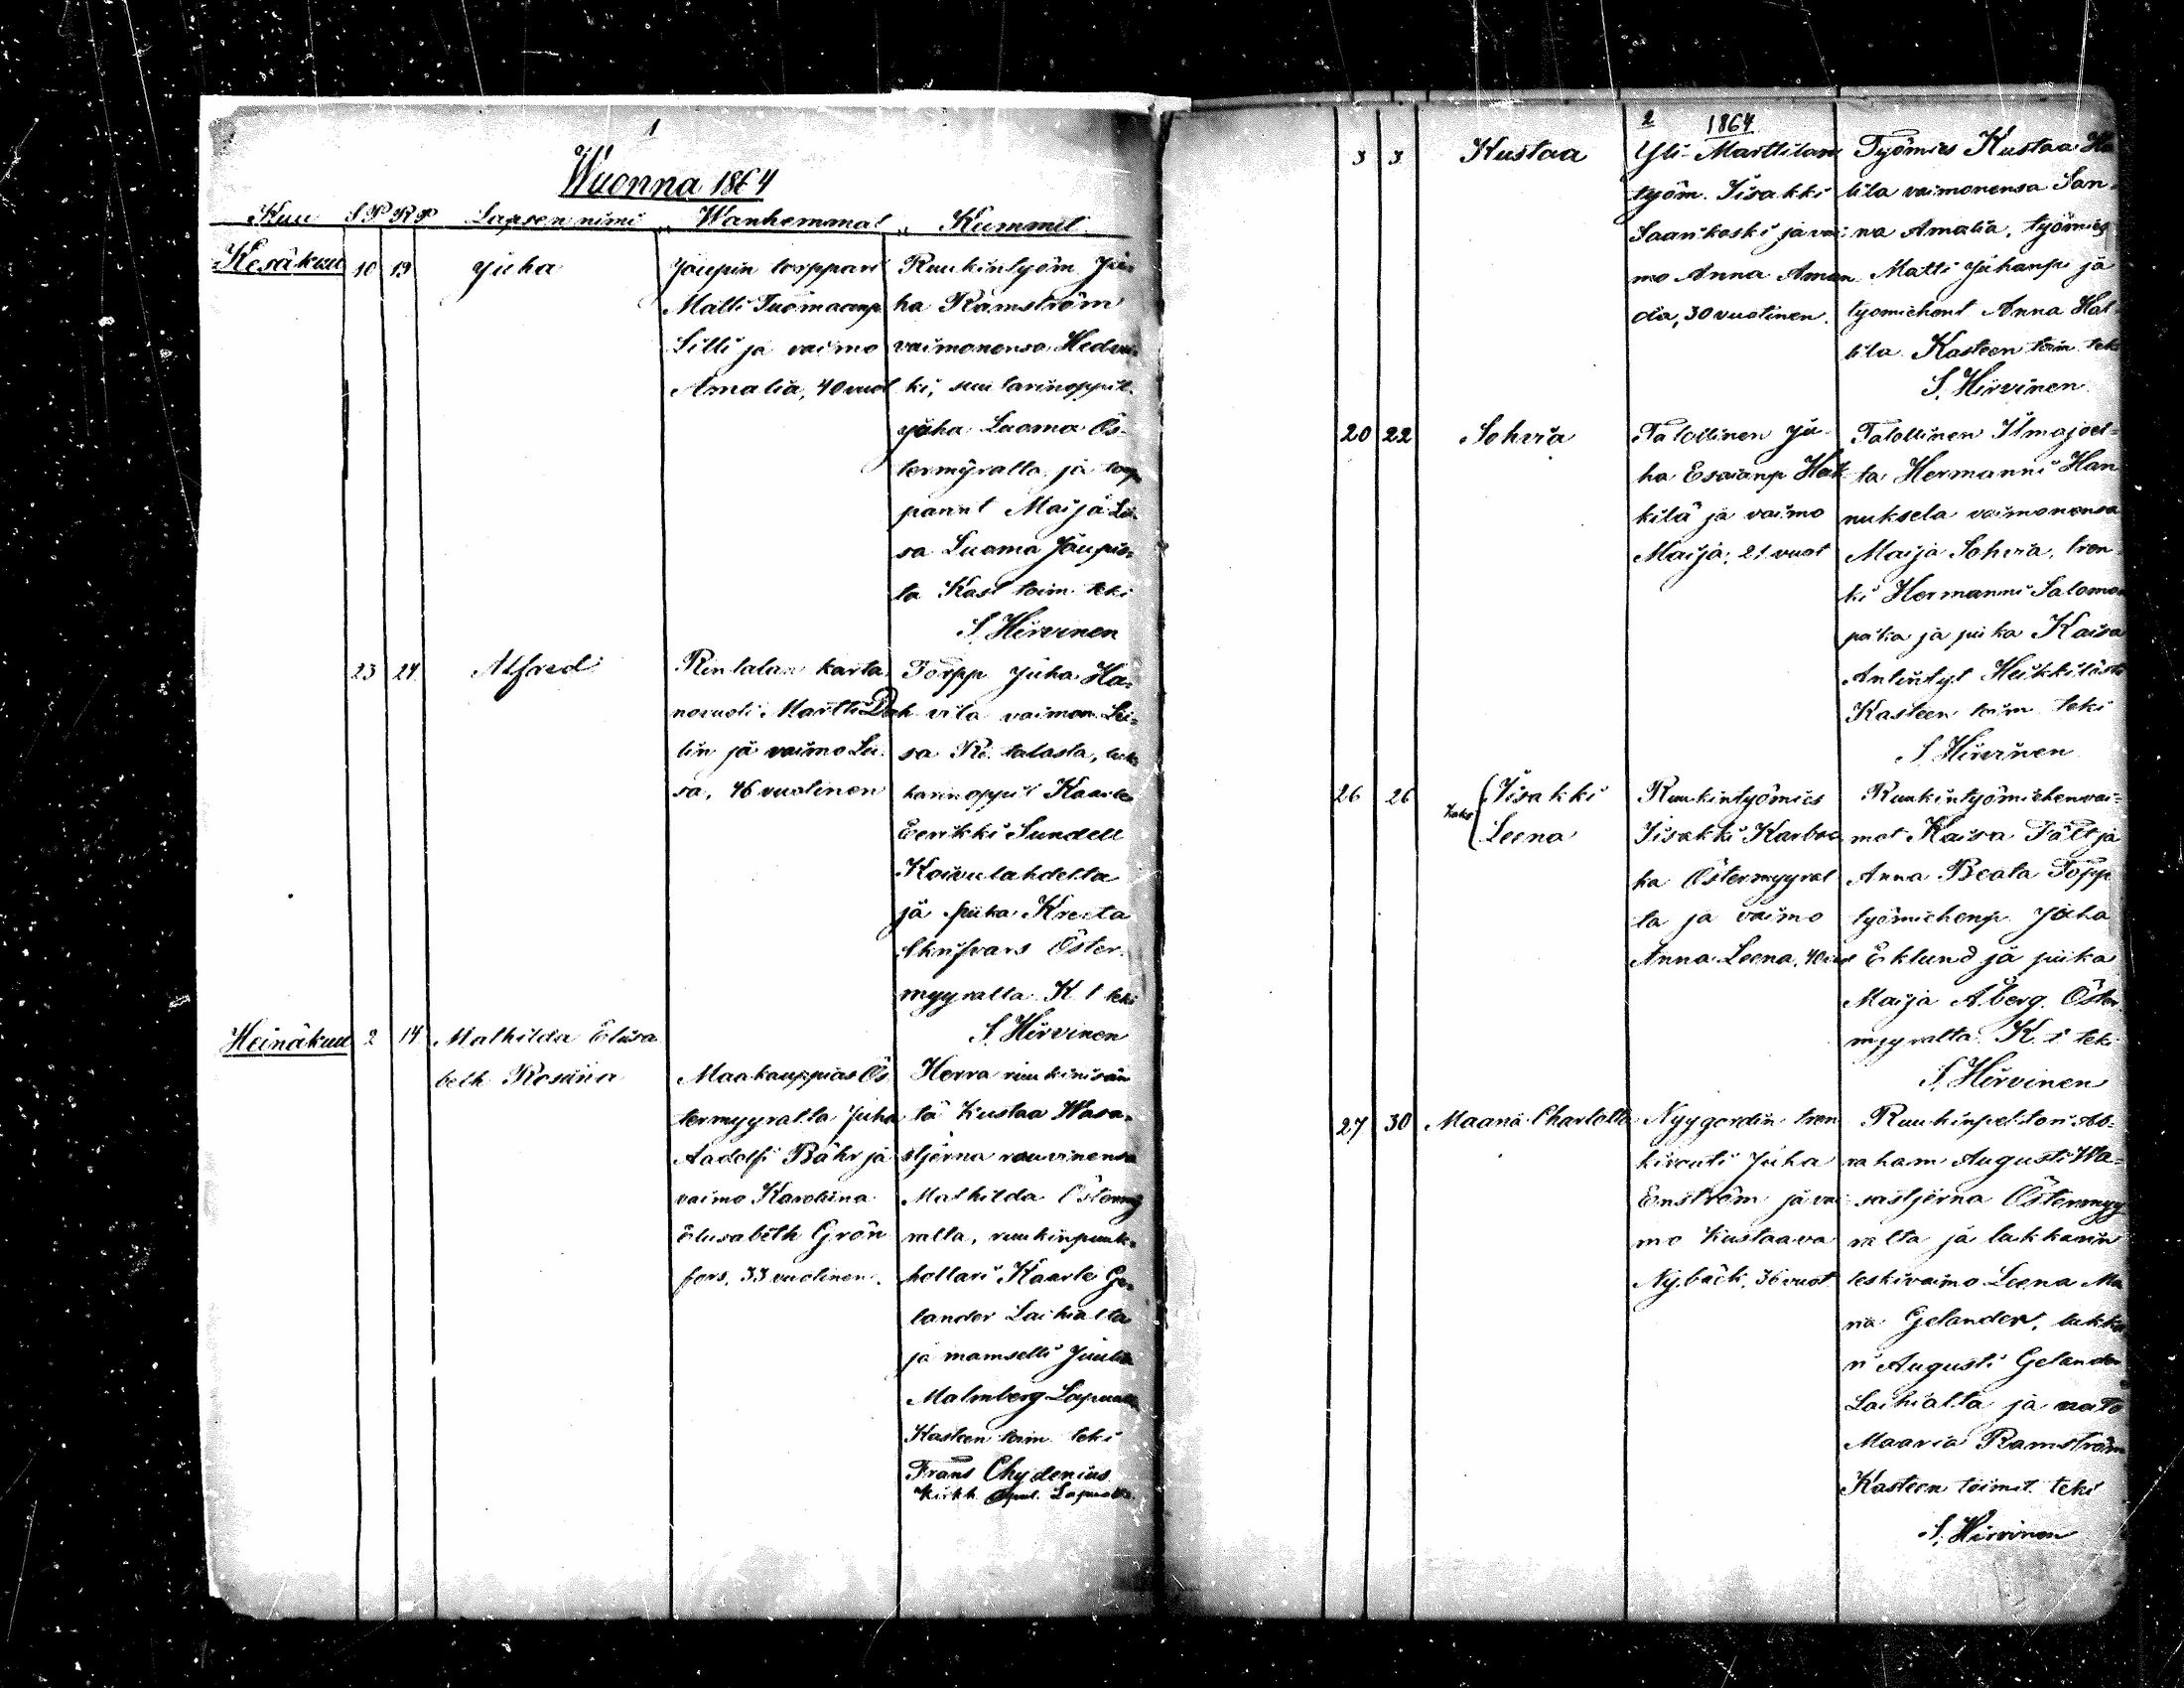 1
Wuonna 1864
Kuu S P K P Lapsen nimi „ Wanhemmat „ Kummit
Kesäkuu 10 19 Juha
Joupin torppari
Matti Tuomaanp
Silli ja vaimo
Amalia, 40 vuot
Ruukintyöm Ju-
ha Ramström
vaimonensa Hedvi-
ki, suutarinoppil.
Juha Luoma Ös-
termyralta ja torp
parint Maija Lii-
sa Luoma Joupis-
ta Kast toim. teki
S. Hirvinen
23 24 Alfred
Rintalan karta
novouti Martti Dah
lin ja vaimo Lii-
sa, 46 vuotinen
Torpp Juha Ha-
vila vaimon. Lii-
sa Ri. talasta, luk-
karinoppil Kaarle
Eerikki Sundell
Koivulahdelta
ja piika Kreeta
Skrifvars Öster-
myyralta K t teki
S. Hirvinen
Heinäkuu 2 14 Mathilda Elisa
beth Rosina
Maakauppias Ös
termyyralta Juha
Aadolfi Bähr ja
vaimo Karoliina
Elisabeth Grön
fors, 33 vuotinen.
Herra ruukinisän
tä Kustaa Wasa-
stjerna rouvinensa
Mathilda Östermy
ralta, ruukinpuuk-
hollari Kaarle Ge-
lander Laihialta
ja mamselli Juulia
Malmberg Lapualta
Kasteen toim. teki
Frans Chydenius
Kirkh. Lapualta.
2 1864
3 3 Kustaa
Yli-Marttilan
työm. Iisakki
Saarikoski ja vai
mo Anna Aman
da, 30 vuotinen.
Työmies Kustaa Ha
lila vaimonensa San
na Amalia, työmies
Matti Juhanp. ja
työmiehent Anna Hal
lila Kasteen toim. teki
S. Hirvinen
20 22 Sohvia
Talollinen Ju
ha Esaianp Heik
kilä ja vaimo
Maija, 21 vuot
Talollinen Ilmajoel-
ta Hermanni Han
nuksela vaimonensa
Maija Sohvia, tren-
ki Hermanni Salomon
poika ja piika Kaisa
Antintyt Heikkilästä
Kasteen toim teki
S. Hirvinen
26 26 kaks. Iisakki
Leena
Ruukintyömies
Iisakki Karbac
ka Östermyyral
ta ja vaimo
Anna Leena, 40 vuot
Ruukintyömiehenvai-
mot Kaisa Fält ja
Anna Beata Topp
työmiehenp. Juha
Eklund ja piika
Maija Åberg. Öster
myyralta K. t. teki
S. Hirvinen
27 30 Maaria Charlotta
Nyygordin tren
kivouti Juha
Enström ja vai
mo Kustaava
Nybäck, 36 vuot
Ruukinpehtori Ab-
raham Augusti Wa-
sastjerna Östermyy
ralta ja lukkarin
leskivaimo Leena Ma
ria Gelander, lukka
ri Augusti Gelander
Laihialta ja
Maaria Ramström
Kasteen toimit. teki
S. Hirvinen